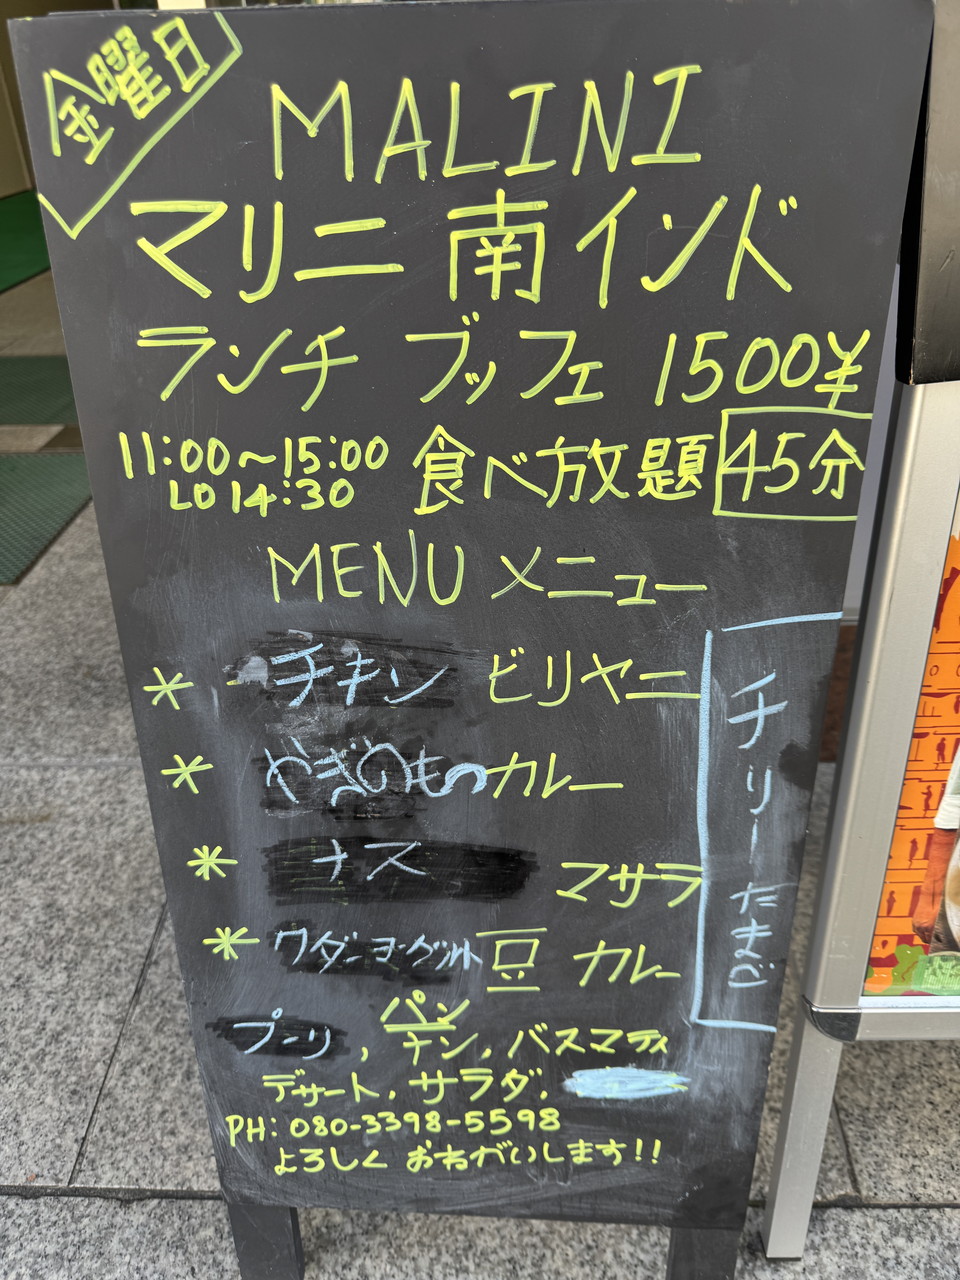 金曜日
MALINI
マリニ 南インド
ランチ ブッフェ 1500¥
11:00～15:00 食べ放題 45分
LO 14:30
MENU メニュー
* チキン ビリヤニ
* やぎのもつカレー
* ナス マサラ
* ワダーヨーグルト 豆 カレー
チリーたまご
パン
プーリ, ナン, バスマティ
デサート, サラダ,
PH: 080-3398-5598
よろしく おねがいします!!